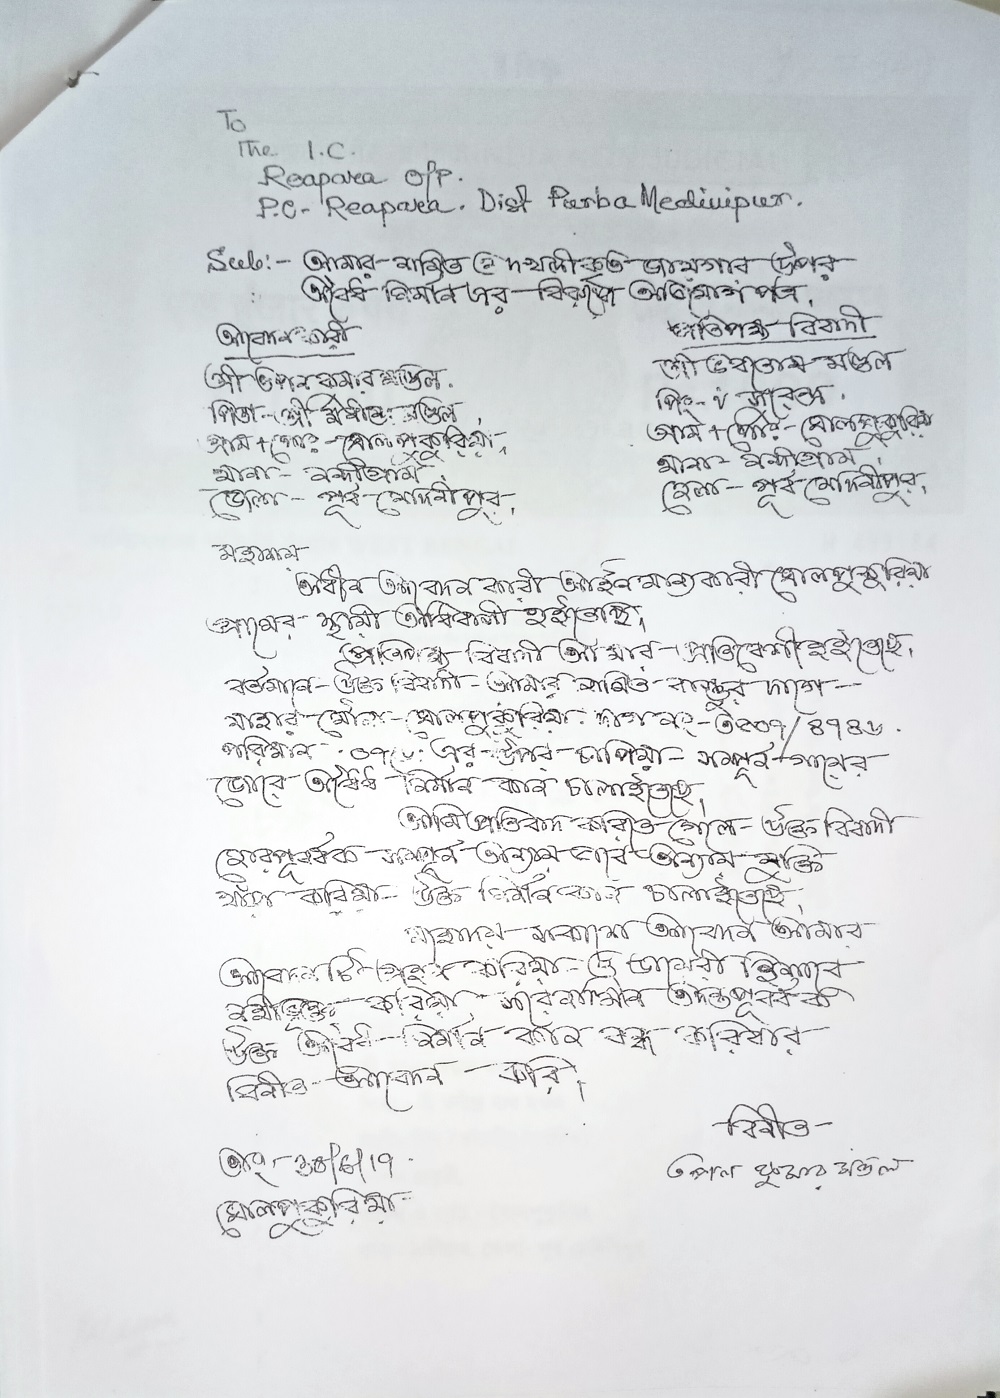 To
The I.C.
Reapara O/P.
P.O- Reapara. Dist Purba Medinipur.
Sub:- আমার মালিকত্ব ও দখলীকৃত জায়গার উপর
অবৈধ নির্মান এর বিরুদ্ধে অভিযোগ পত্র,
আবেদনকারী
শ্রী তপন কুমার মণ্ডল.
পিতা- শ্রী মণ্ডল,
গ্রাম + পোঃ - ঘোলপুকুরিয়া,
থানা - নন্দীগ্রাম,
জেলা - পূর্ব মেদিনীপুর,
প্রতিপক্ষ বিবাদী
শ্রী মণ্ডল
পিং- ৺ সুরেন্দ্র.
গ্রাম + পোঃ - ঘোলপুকুরিয়া
থানা - নন্দীগ্রাম,
জেলা - পূর্ব মেদিনীপুর,
মহাশয়
অধীন আবেদন কারী আইন মান্যকারী ঘোলপুকুরিয়া
গ্রামের স্থায়ী অধিবাসী হইতেছি,
প্রতিপক্ষ বিবাদী আমার প্রতিবেশী হইতেছে,
বর্তমানে উক্ত বিবাদী আমার বাস্তুর দাগে -
যাহার মৌজা - ঘোলপুকুরিয়া. দাগ নং - ৩২০৭/৪৭৪৬.
পরিমান এর উপর চাপিয়া সম্পূর্ন গায়ের
জোরে অবৈধ নির্মান কাজ চালাইতেছে,
আমি প্রতিবাদ করিতে গেলে উক্ত বিবাদী
জোরপূর্বক সম্পূর্ন অন্যায় ভাবে অন্যায় যুক্তি
খাড়া করিয়া উক্ত নির্মান কাজ চালাইতেছে,
মহাশয় সকাশে আবেদন আমার
আবেদন টি গ্রহণ করিয়া ও ডায়েরী হিসাবে
নথীভুক্ত করিয়া, সরেজমিন তদন্তপূর্বক
উক্ত অবৈধ নির্মান কাজ বন্ধ করিবার
বিনীত আবেদন করি,
বিনীত -
তপন কুমার মণ্ডল
তাং - /6/19.
ঘোলপুকুরিয়া